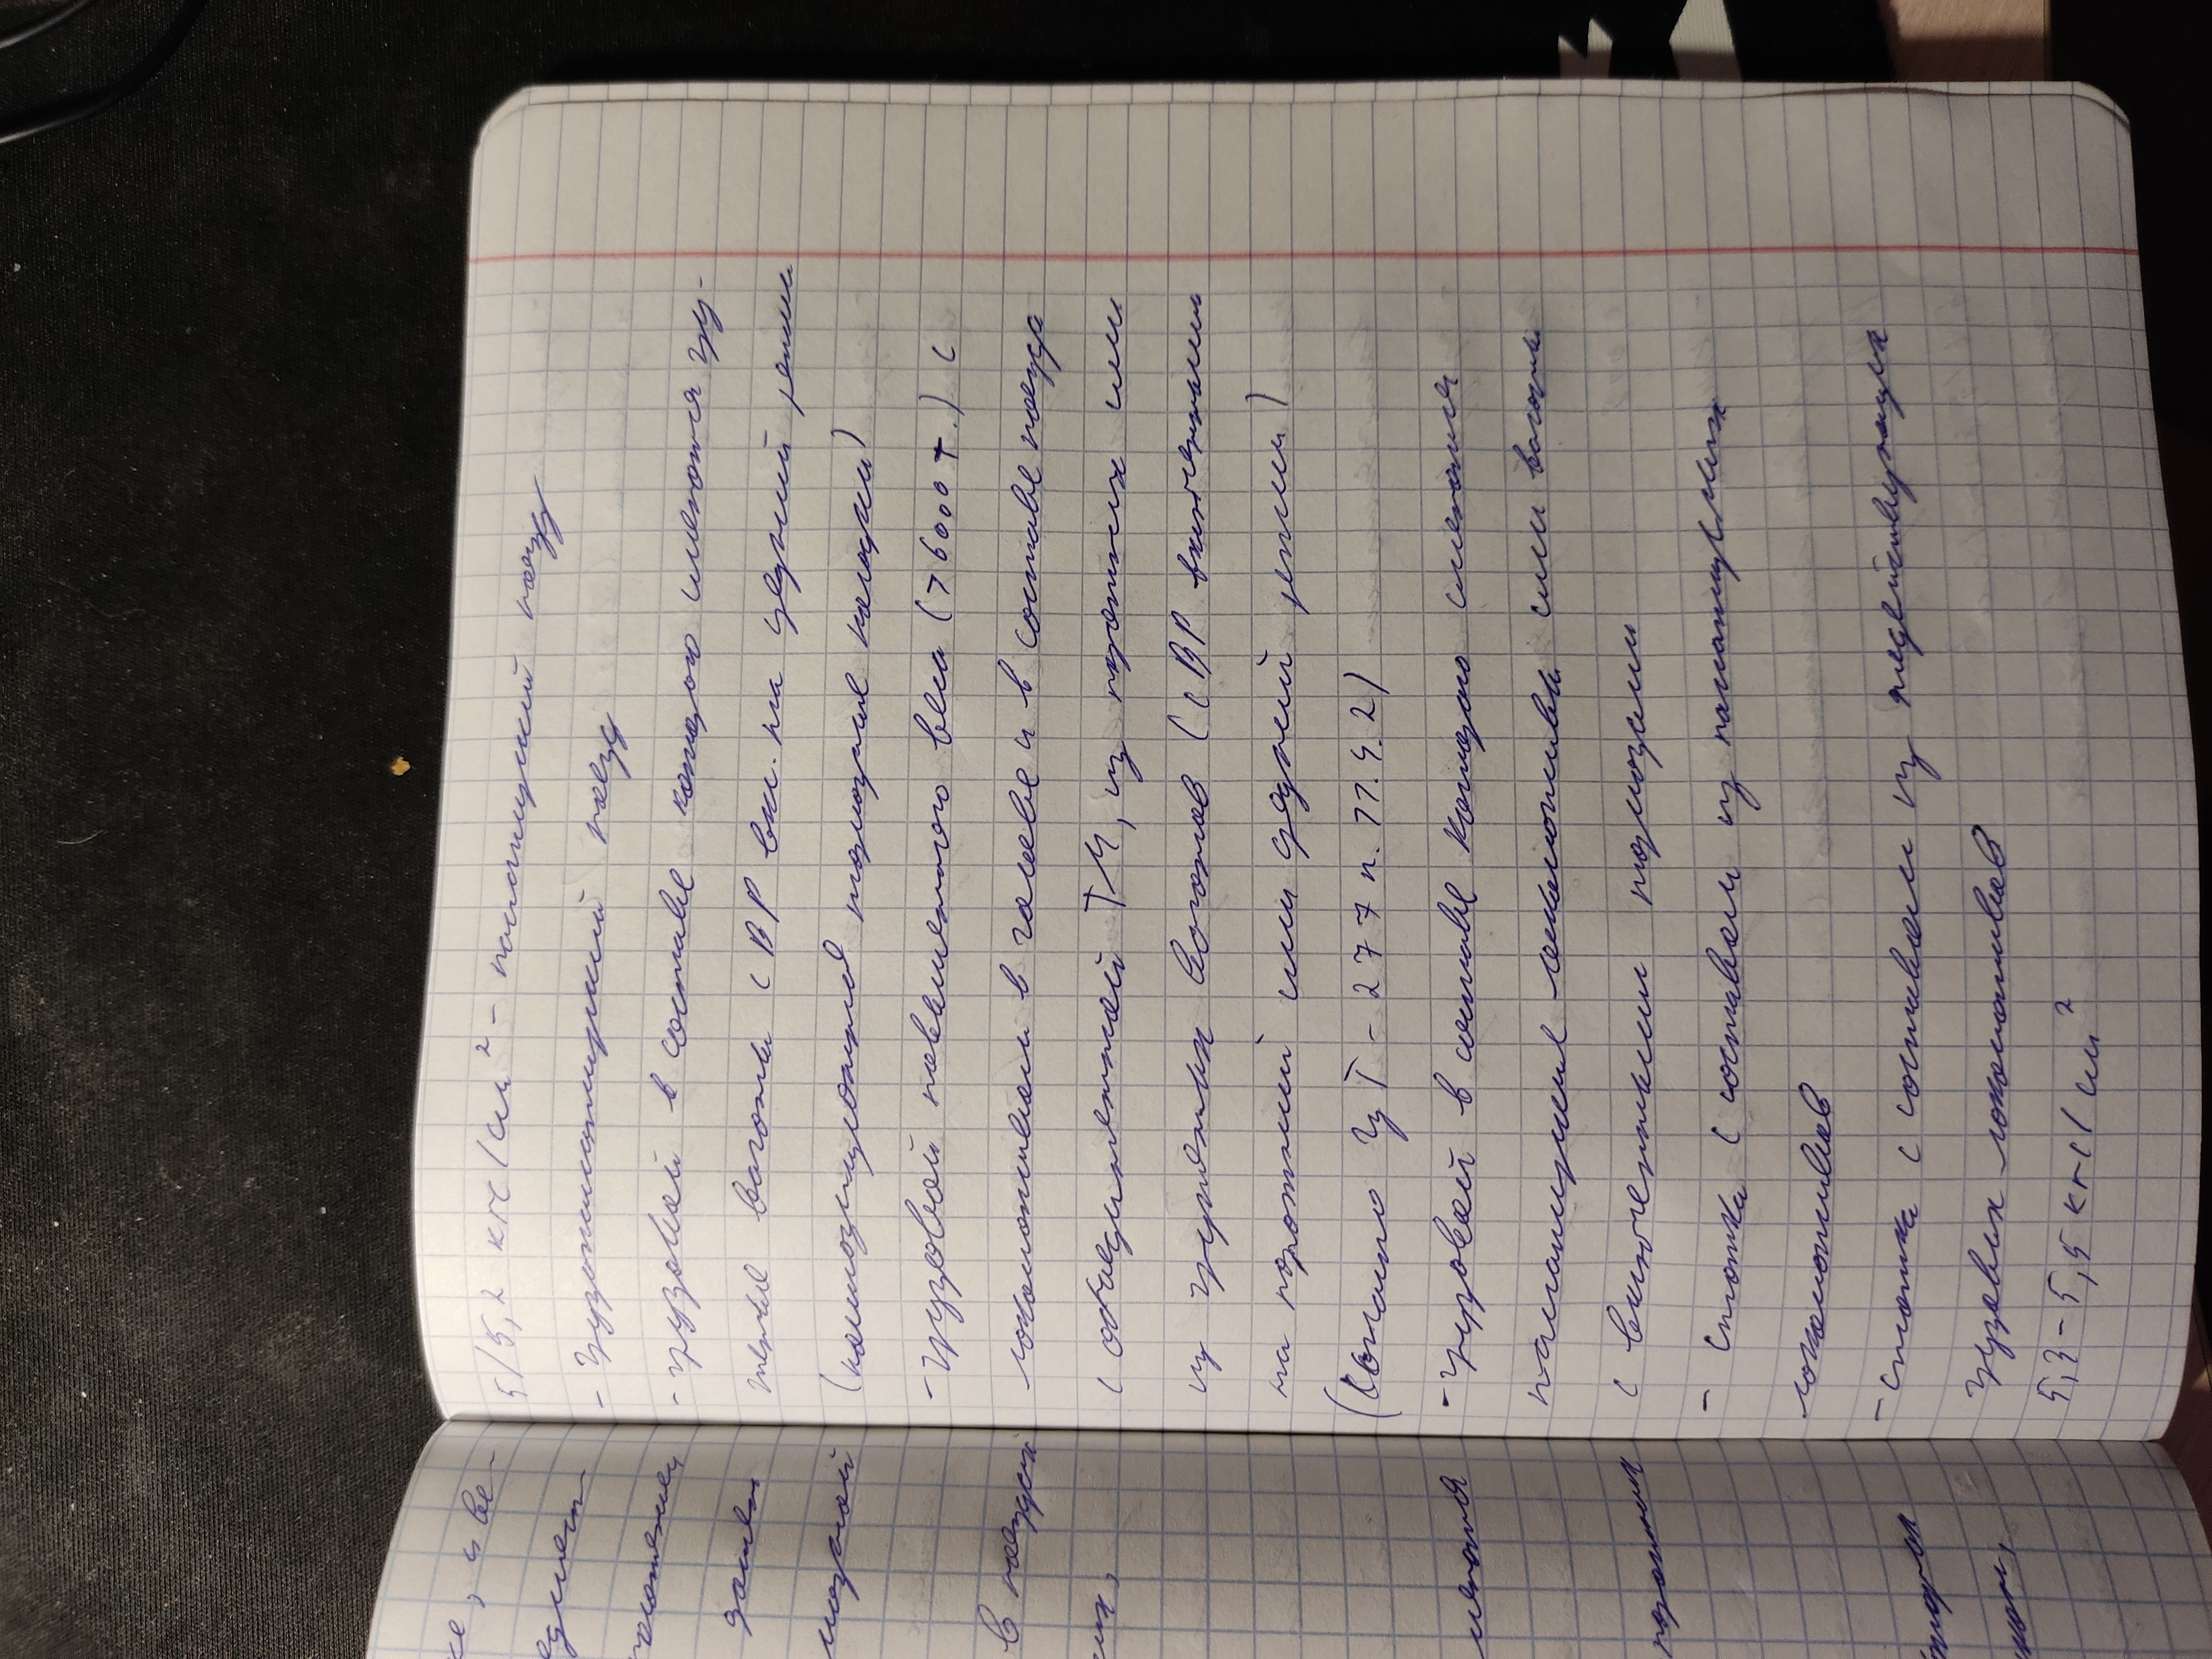 5/5,2 кгс/см² - пассажирский поезд
- грузопассажирский поезд
- грузовой в составе которого имеются гру-
женые вагоны с ВР вкл. на средний режим
(композиционные тормозные колодки)
- грузовой повышенного веса (> 6000 т.) с
локомотивом в голове и в составе поезда
с объединенной ТМ, из порожних или
из груженых вагонов (с ВР включенными
на порожний или средний режим)
(согласно ЦТ - 277 п. 11.4.2)
- грузовой в составе которого имеются
пассажирские локомотивы или вагоны
с включенными тормозами
- сплотка с составом из пассажирских
локомотивов
- сплотка с составом из недействующих
грузовых локомотивов
5,3 - 5,5 кгс/см²
же, и ве-
в поездах